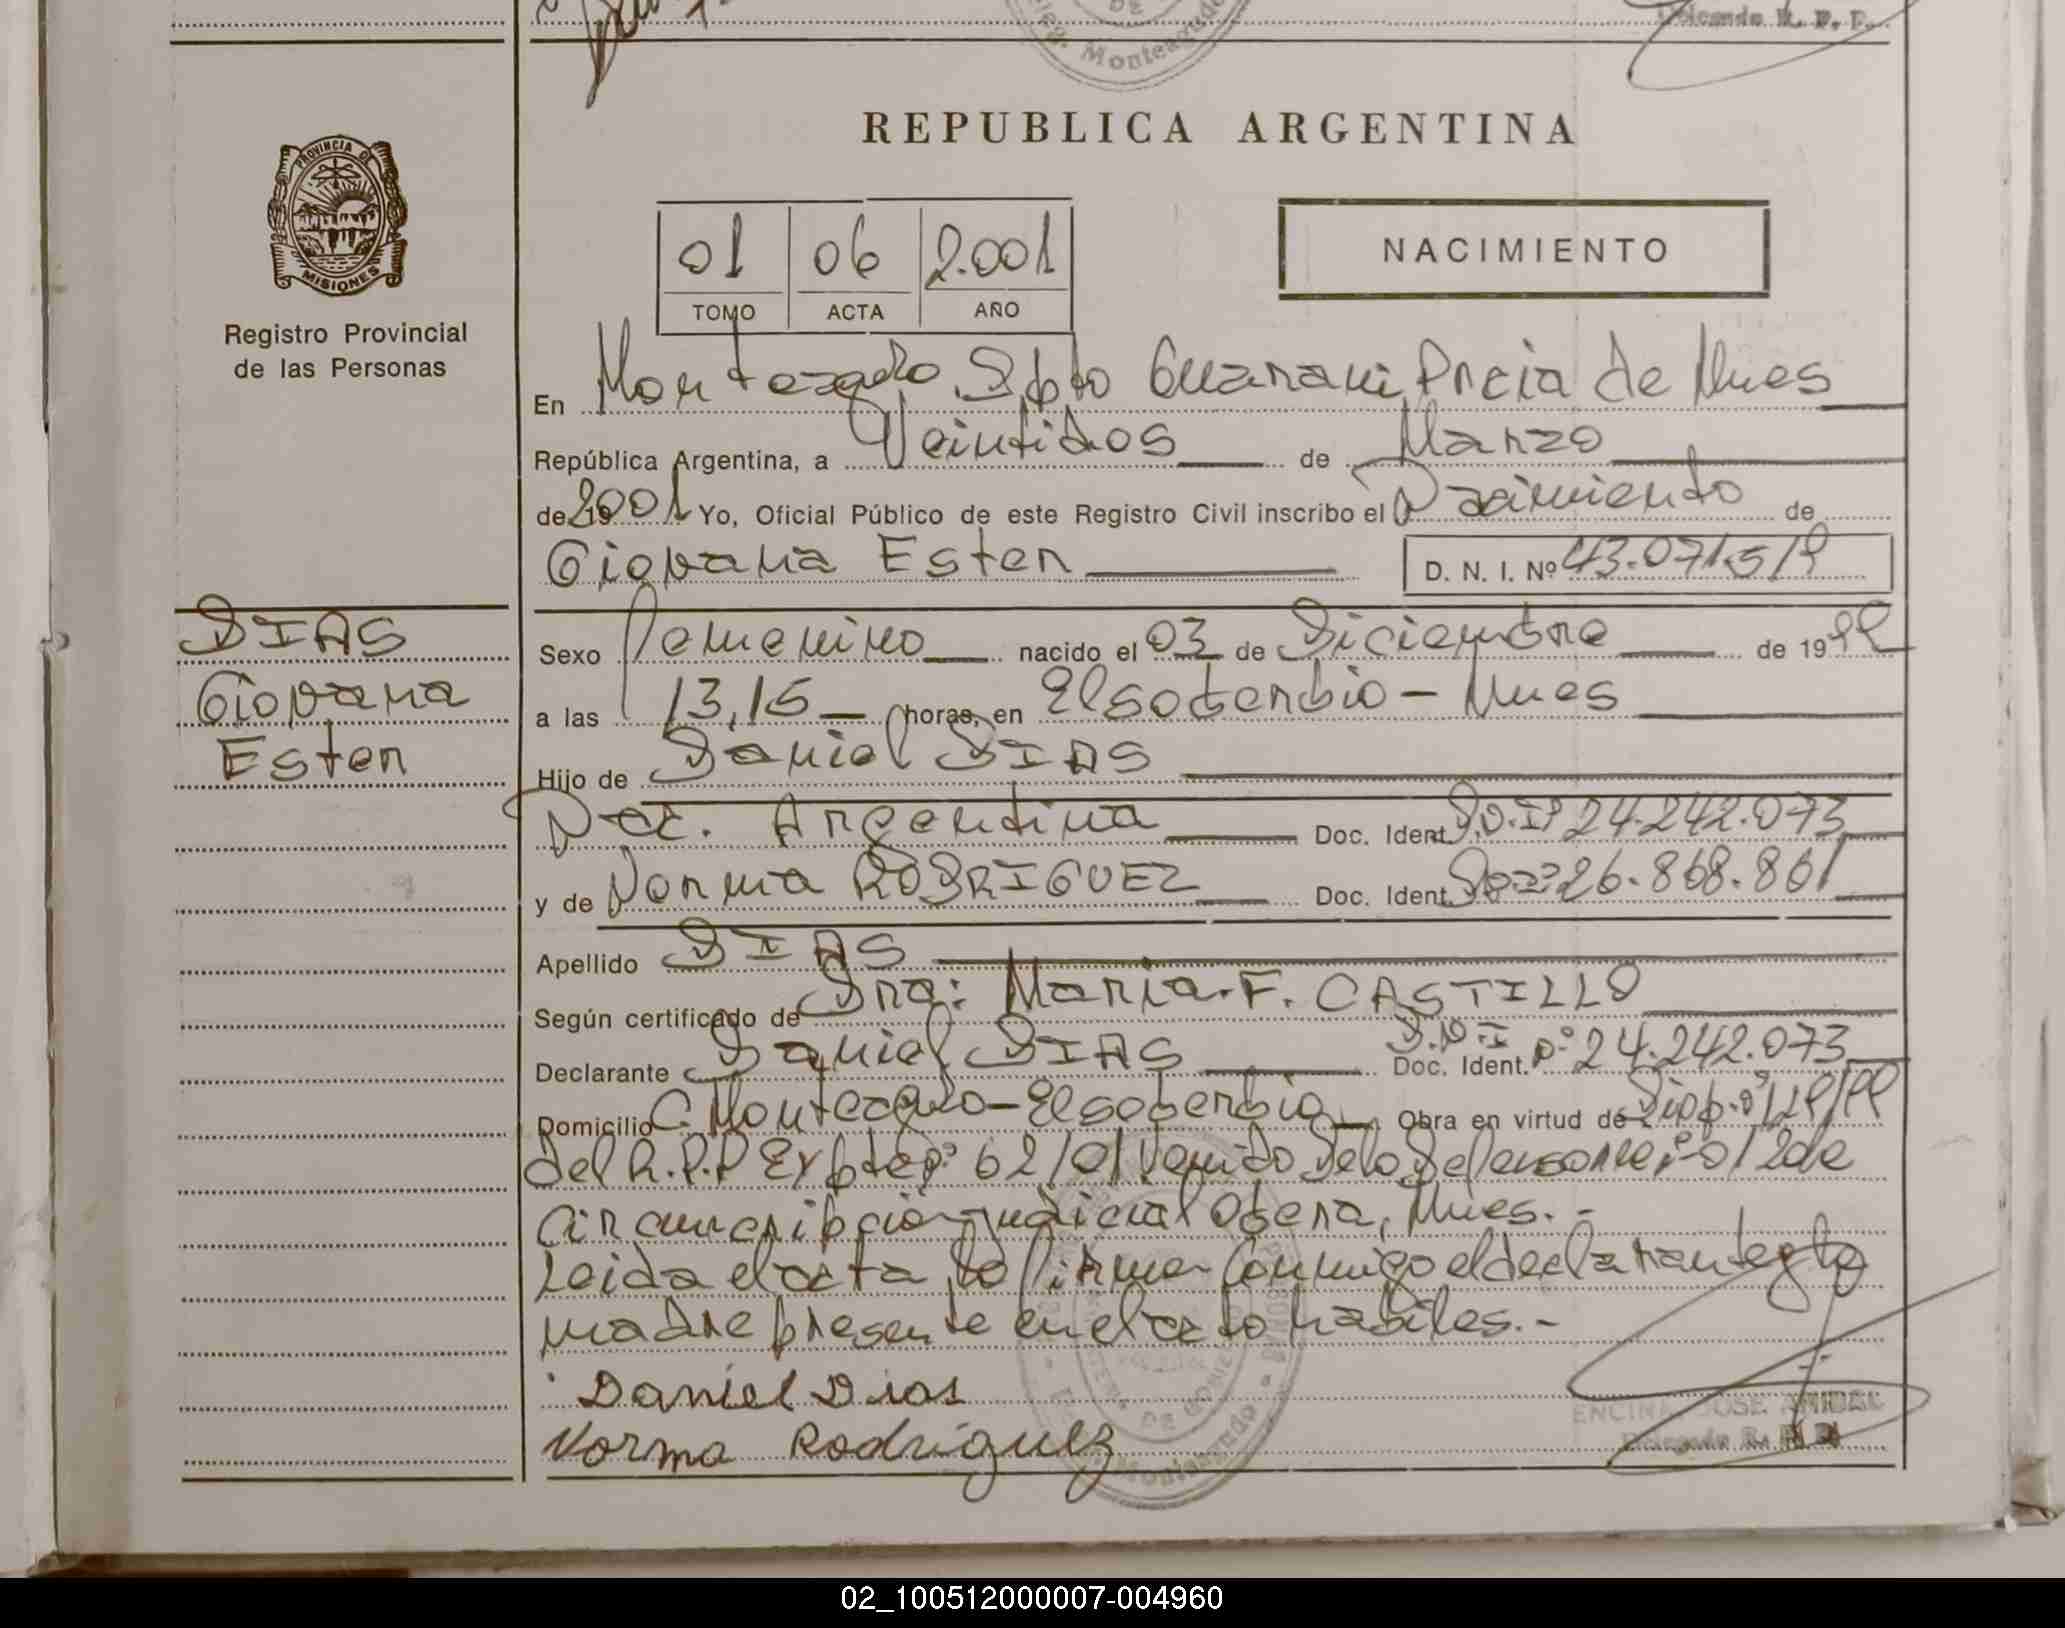 Monteagudo
REPUBLICA ARGENTINA
PROVINCIA DE
MISIONES
Registro Provincial
de las Personas
01 06 2.001
TOMO ACTA AÑO
NACIMIENTO
En Monteagudo Dpto Guarani Pncia de Mnes
República Argentina, a Veintidos de Marzo
de 19 2001 Yo, Oficial Público de este Registro Civil inscribo el Nacimiento de
Giovana Ester D. N. I. Nº 43.071.519
DIAS
Giovana
Ester
Sexo Femenino nacido el 03 de Diciembre de 1999
a las 13,15 horas, en El soberbio - Mnes
Hijo de Daniel DIAS
Nac. Argentina Doc. Ident. D.N.I Nº 24.242.073
y de Norma RODRIGUEZ Doc. Ident. 26.868.861
Apellido DIAS
Según certificado de Dra: Maria. F. CASTILLO
Declarante Daniel DIAS Doc. Ident. D.N.I Nº 24.242.073
Domicilio C. Monteagudo - El soberbio Obra en virtud de Disp. Nº 129/99
del R.P.P Expte Nº 62/01 Venido de la Defensoria Nº 01 2da
Circunscripción Judicial Obera, Mnes. -
Leida el acta, la firma conmigo el declarante y la
madre presente en el acto habiles. -
Daniel Dias
Norma Rodriguez
ENCINA JOSE ANIBAL
Delegado R. P. P.
Monteagudo
02_100512000007-004960